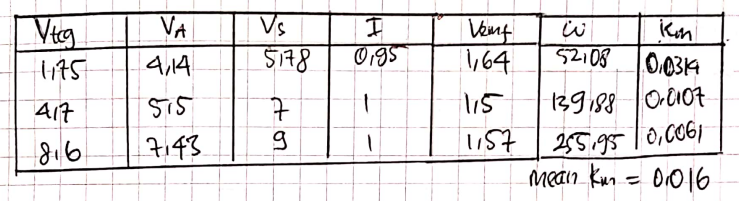 Vtcg VA Vs I Vemf ω Km
1,75 4,14 5,78 0,95 1,64 52,08 0,0314
4,7 5,5 7 1 1,5 139,88 0,0107
8,6 7,43 9 1 1,57 255,95 0,0061
Mean Km = 0,016